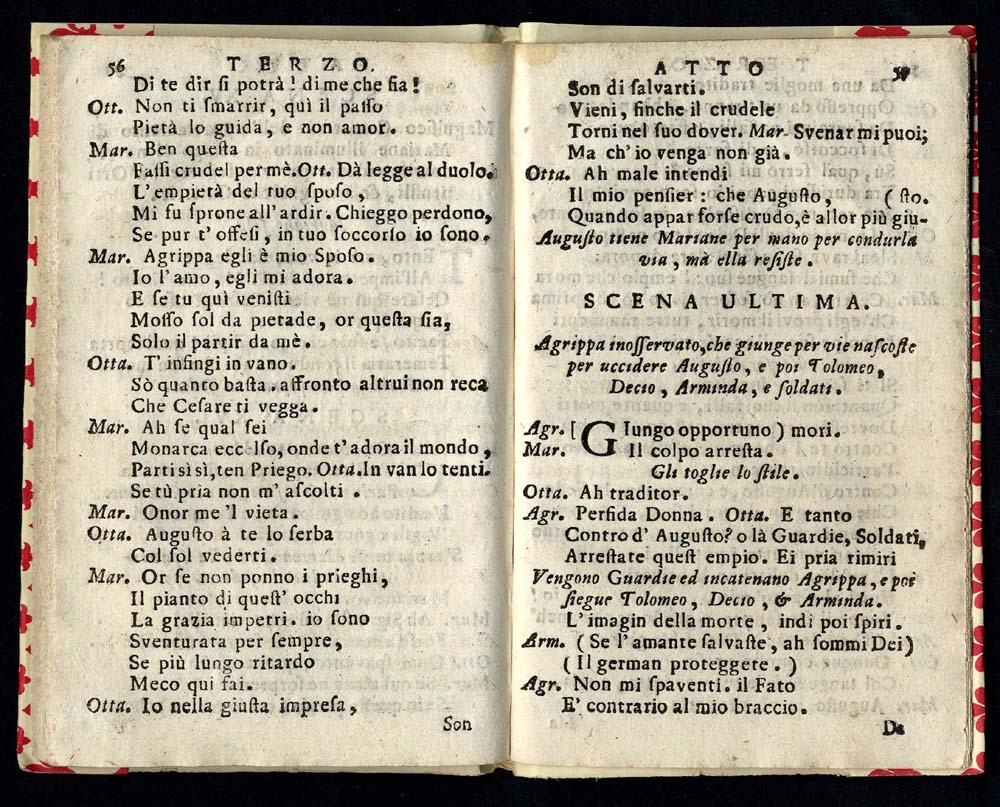 56 TERZO.
Di te dir ſi potrà! di me che fia!
Ott. Non ti ſmarrir, quì il paſſo
Pietà lo guida, e non amor.
Mar. Ben queſta
Faſſi crudel per mè. Ott. Dà legge al duolo.
L'empietà del tuo ſpoſo,
Mi fu ſprone all'ardir. Chieggo perdono,
Se pur t'offeſi, in tuo ſoccorſo io ſono.
Mar. Agrippa egli è mio Spoſo.
Io l'amo, egli mi adora.
E ſe tu quì veniſti
Moſſo ſol da pietade, or queſta ſia,
Solo il partir da mè.
Otta. T'infingi in vano.
Sò quanto baſta. affronto altrui non reca
Che Ceſare ti vegga.
Mar. Ah ſe qual ſei
Monarca eccelſo, onde t'adora il mondo,
Parti sì sì, ten Priego. Otta. In van lo tenti.
Se tù pria non m'aſcolti.
Mar. Onor me 'l vieta.
Otta. Auguſto à te lo ſerba
Col ſol vederti.
Mar. Or ſe non ponno i prieghi,
Il pianto di queſt' occhi
La grazia impetri. io ſono
Sventurata per ſempre,
Se più lungo ritardo
Meco qui fai.
Otta. Io nella giuſta impreſa,
Son
ATTO 57
Son di ſalvarti.
Vieni, finche il crudele
Torni nel ſuo dover. Mar. Svenar mi puoi;
Ma ch'io venga non già.
Otta. Ah male intendi
Il mio penſier: che Auguſto, (ſto.
Quando appar forſe crudo, è allor più giu-
Auguſto tiene Mariane per mano per condurla
via, mà ella reſiſte.
SCENA ULTIMA.
Agrippa inoſſervato, che giunge per vie naſcoſte
per uccidere Auguſto, e poi Tolomeo,
Decio, Arminda, e ſoldati.
Agr. [ Giungo opportuno ) mori.
Mar. Il colpo arreſta.
Gli toglie lo ſtile.
Otta. Ah traditor.
Agr. Perfida Donna. Otta. E tanto
Contro d'Auguſto? o là Guardie, Soldati,
Arreſtate queſt empio. Ei pria rimiri
Vengono Guardie ed incatenano Agrippa, e poi
ſiegue Tolomeo, Decio, & Arminda.
L'imagin della morte, indi poi ſpiri.
Arm. (Se l'amante ſalvaſte, ah ſommi Dei)
(Il german proteggere.)
Agr. Non mi ſpaventi. il Fato
E' contrario al mio braccio.
De